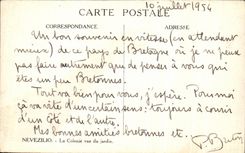 10 juillet 1954
CARTE POSTALE
CORRESPONDANCE ADRESSE
Un bon souvenir en vitesse (en attendant
mieux) de ce pays de Bretagne où je ne peux
pas faire autrement que de penser à vous qui
êtes un peu Bretonnes.
Tout va bien pour vous, j'espère. Pour moi
ça va vite d'un certain sens: toujours à courir
d'un côté et de l'autre.
Mes bonnes amitiés bretonnes etc.
NEVEZILIO. - Le Colonat vue du jardin.